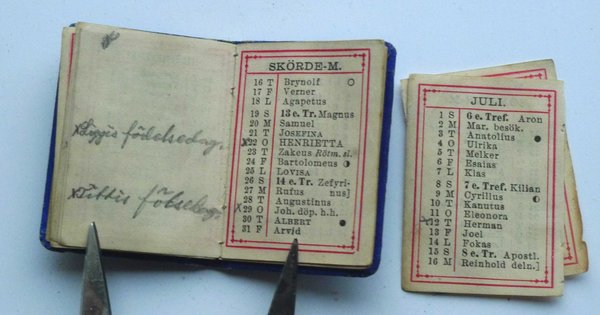 x Siggis födelsedag.
x Tittis födelsedag
SKÖRDE-M.
16 T Brynolf ○
17 F Verner
18 L Agapetus
19 S 13 e. Tr. Magnus
20 M Samuel
21 T JOSEFINA
x22 O HENRIETTA
23 T Zakeus Rötm. sl.
24 F Bartolomeus ◑
25 L LOVISA
26 S 14 e. Tr. Zefyri-
27 M Rufus nus]
28 T Augustinus
x29 O Joh. döp. h.h.
30 T ALBERT ●
31 F Arvid
JULI.
1 S 6 e. Tref. Aron
2 M Mar. besök.
3 T Anatolius ●
4 O Ulrika
5 T Melker
6 F Esaias
7 L Klas
8 S 7 e. Tref. Kilian
9 M Cyrillus ◐
10 T Kanutus
11 O Eleonora
x12 T Herman
13 F Joel
14 L Fokas
15 S 8 e. Tr. Apostl.
16 M Reinhold deln.]